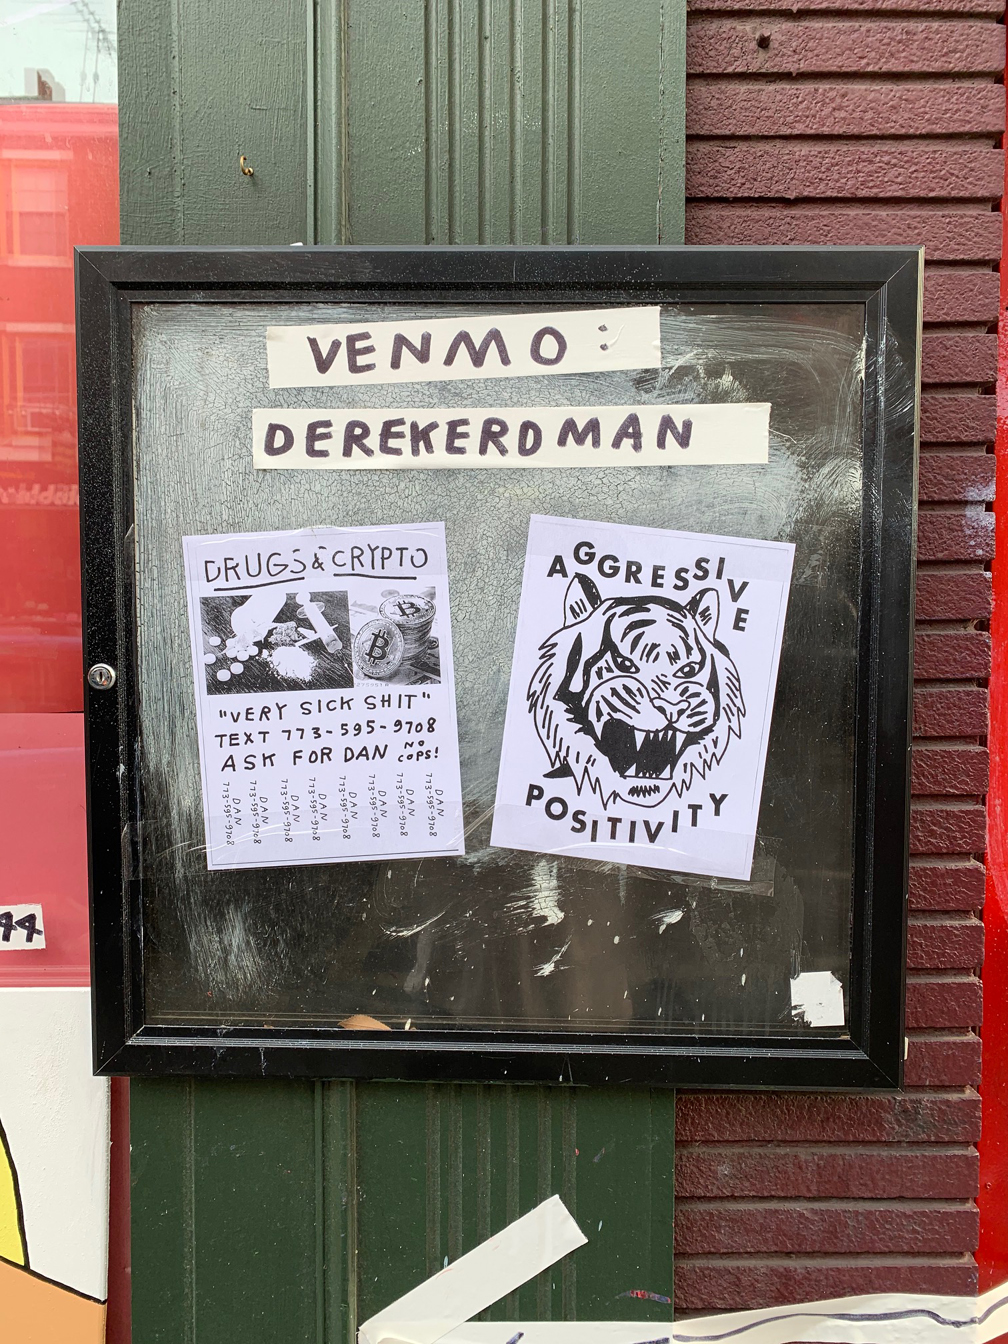 VENMO:
DEREKERDMAN
DRUGS & CRYPTO
"VERY SICK SHIT"
TEXT 773-595-9708
ASK FOR DAN NO COPS!
DAN 773-595-9708
DAN 773-595-9708
DAN 773-595-9708
DAN 773-595-9708
DAN 773-595-9708
DAN 773-595-9708
DAN 773-595-9708
DAN 773-595-9708
AGGRESSIVE
POSITIVITY
44